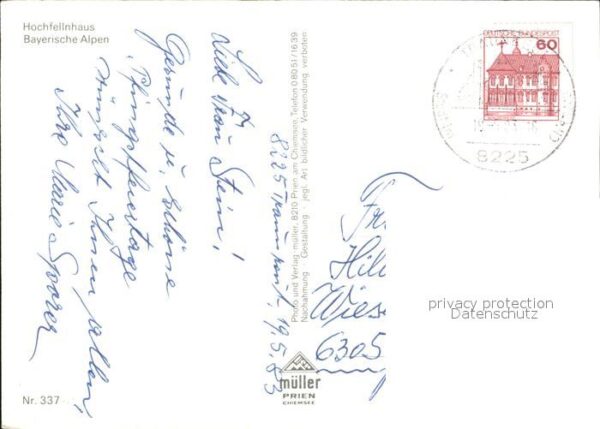 Hochfellnhaus
Bayerische Alpen
8225 Traunreut, 19.5.83
Liebe Frau Stein!
Gesunde u. schöne
Pfingstfeiertage
wünscht Ihnen allen,
Ihre Marie Sporer
Nr. 337
Photo und Verlag müller, 8210 Prien am Chiemsee, Telefon 0 80 51/16 39
Nachahmung · Gestaltung · jegl. Art bildlicher Verwendung verboten
müller
PRIEN
CHIEMSEE
DEUTSCHE BUNDESPOST
60
8225
Fr
Hil
Wies
6305
privacy protection
Datenschutz